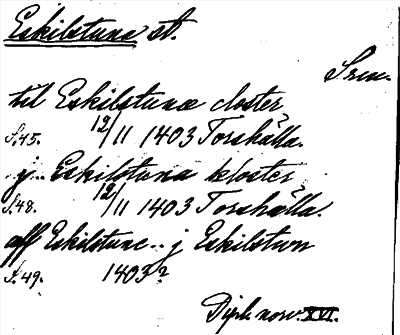 Eskilstuna st.
Srm.
til Eskilstunæ closter
S.45. 12/11 1403 Torshälla.
j.. Eskilstuna kloster
S.48. 12/11 1403 Torshälla.
aff Eskilstune.. j Eskilstun
S.49. 1403?
Dipl. norv. XVI.